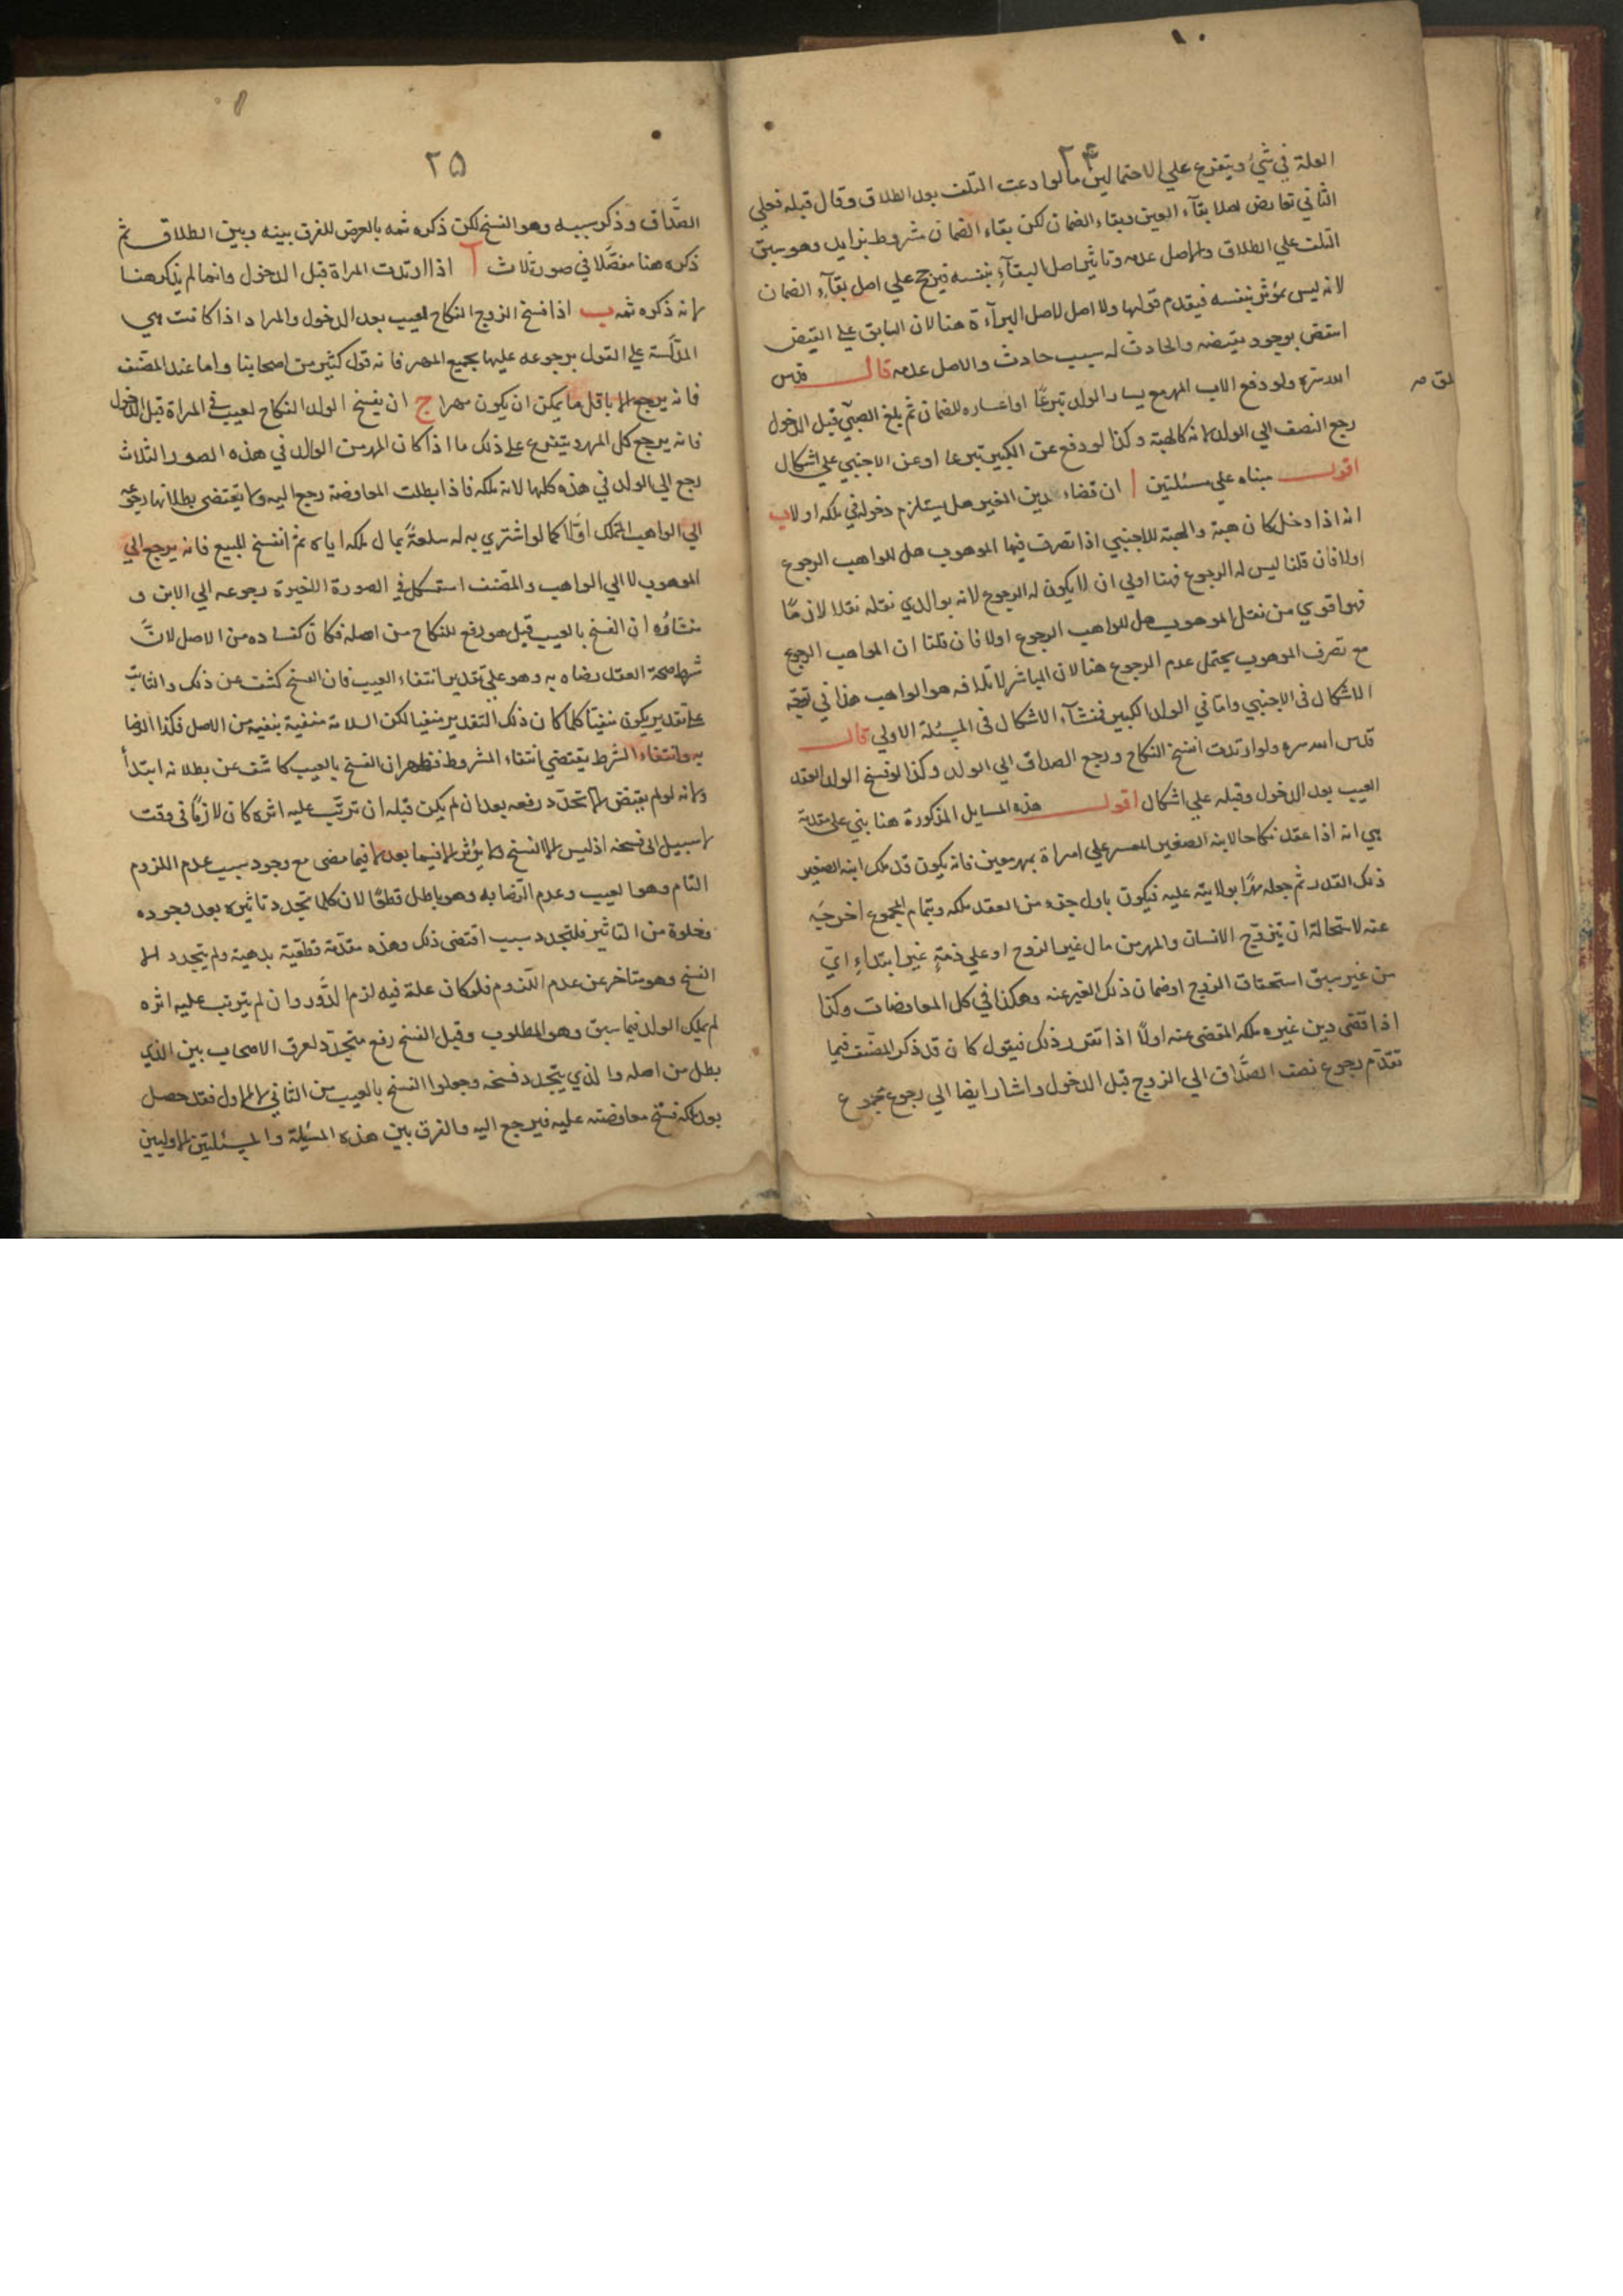 ١٠
٢٤
العلة في شيء ويتفرع على الاحتمالين ما لو ادعت التلف بعد الطلاق وقال قبله فعلى
الثاني تعارض اصلا بقآء العين وبقاء الضمان لكن بقاء الضمان مشروط بزايد وهو سبق
التلف على الطلاق والاصل عدمه وتاثير اصل البقآء بنفسه فيرجح على اصل بقآء الضمان
لانه ليس بمؤثر بنفسه فيقدم قولها ولا اصل لاصل البرآءة هنا لان السابق على القبض
انتقض بوجود نقيضه والحادث له سبب حادث والاصل عدمه قال قدس
الله سره ولو دفع الاب المهر مع يسار الولد تبرعًا او اعساره للضمان ثم بلغ الصبي قبل الدخول
رجع النصف الي الولد لانه كالهبة وكذا لو دفع عن الكبير تبرعا او عن الاجنبي على اشكال
اقول مبناه على مسئلتين ا ان قضاء دين الغير هل يستلزم دخوله في ملكه اولا ب
انه اذا دخل كان هبة والهبة للاجنبي اذا تصرف فيها الموهوب هل للواهب الرجوع
اولا فان قلنا ليس له الرجوع فهنا اولى ان لا يكون له الرجوع لانه بوالذي نقله نقلا لازمًا
فهو اقوي من نقل الموهوب هل للواهب الرجوع اولا فان قلنا ان للواهب الرجوع
مع تصرف الموهوب يحتمل عدم الرجوع هنا لان المباشر لاتلافه هو الواهب هذا في توجيه
الاشكال في الاجنبي واما في الولد الكبير فمنشآء الاشكال في المسئلة الاولى قال
قدس الله سره ولو ارتدت انفسخ النكاح ورجع الصداق الي الولد وكذا لو فسخ الولد العقد
العيب بعد الدخول وقبله على اشكال اقول هذه المسايل المذكورة هنا بني على مقدمة
هي انه اذا عقد نكاحا لابنه الصغير المعسر على امراة بمهر معين فانه يكون قد ملك ابنه الصغير
ذلك القدر ثم جعله مهرًا بولايته عليه فيكون باول جزء من العقد ملكه وبتمام المجموع اخرجه
عنه لاستحالة ان يتزوج الانسان والمهر من مال غير الزوج او على ذمة غير ابتداء اي
من غير سبق استحقاق الزوج او ضمان ذلك الغير عنه وهكذا في كل المعاوضات وكذا
اذا قضى دين غيره ملكه المقضى عنه اولًا اذا تقرر ذلك فيقول كان قد ذكر المصنف فيما
تقدم رجوع نصف الصداق الي الزوج قبل الدخول واشار ايضا الي رجوع مجموع
٢٥
الصداق وذكر سببه وهو الفسخ لكن ذكره ثمه بالعرض للفرق بينه وبين الطلاق ثم
ذكره هنا مفصلا في صور ثلاث آ اذا ارتدت المراة قبل الدخول وانما لم يذكر هنا
لانه ذكره ثمه ب اذا فسخ الزوج النكاح لعيب بعد الدخول والمراد اذا كانت هي
المدلسة على القول برجوعه عليها بجميع المهر فانه قول كثير من اصحابنا واما عند المصنف
فانه يرجع الا باقل ما يمكن ان يكون مهرا ج ان يفسخ الولد النكاح لعيب في المراة قبل الدخول
فانه يرجع كل المهر ويتفرع على ذلك ما اذا كان المهر من الوالد في هذه الصور الثلاث
رجع الي الولد في هذه كلها لانه ملكه فاذا بطلت المعاوضة رجع اليه ولا يقتضى بطلانها رجوعه
الي الواهب المملك اولا كما لو اشتري به له سلعة بمال ملكه اياه ثم انفسخ البيع فانه يرجع الي
الموهوب لا الي الواهب والمصنف استشكل في الصورة الاخيرة رجوعه الي الابن و
منشاؤه ان الفسخ بالعيب قبل هو رفع للنكاح من اصله فكان كفساده من الاصل لان
شرط صحة العقد رضاه به وهو على تقدير انتفاء العيب فان الفسخ كشف عن ذلك والثابت
على تقدير يكون منفيا كلما كان ذلك التقدير منفيا لكن السلامة منفية بنفيه من الاصل فكذا الرضا
به وانتفاء الشرط يقتضي انتفاء المشروط فظهر ان الفسخ بالعيب كاشف عن بطلانه ابتدأ
ولانه لو لم يقتض الا تجدد رفعه بعد ان لم يكن قبله ان ترتب عليه اثره كان لازمًا في وقت
لا سبيل الى فسخه اذ ليس الا الفسخ ولا يؤثر الا فيما بعد لا فيما مضى مع وجود سبب عدم اللزوم
التام وهو العيب وعدم الرضا به وهو باطل قطعًا لان كلما تجدد تاثيره بعد وجوده
وخلوه من التاثير فلتجدد سبب اقتضى ذلك وهذه مقدمة قطعية بدهية ولم يتجدد الا
الفسخ وهو متاخر عن عدم اللزوم فلو كان علة فيه لزم الدور وان لم يترتب عليه اثره
لم يملك الولد فيما سبق وهو المطلوب وقيل الفسخ رفع متجدد لفرق الاصحاب بين الذي
بطل من اصله والذي يتجدد فسخه وجعلوا الفسخ بالعيب من الثاني لا الاول فقد حصل
بعد ملكه فسخ معاوضته عليه فيرجع اليه والفرق بين هذه المسئلة والمسئلتين الاوليين